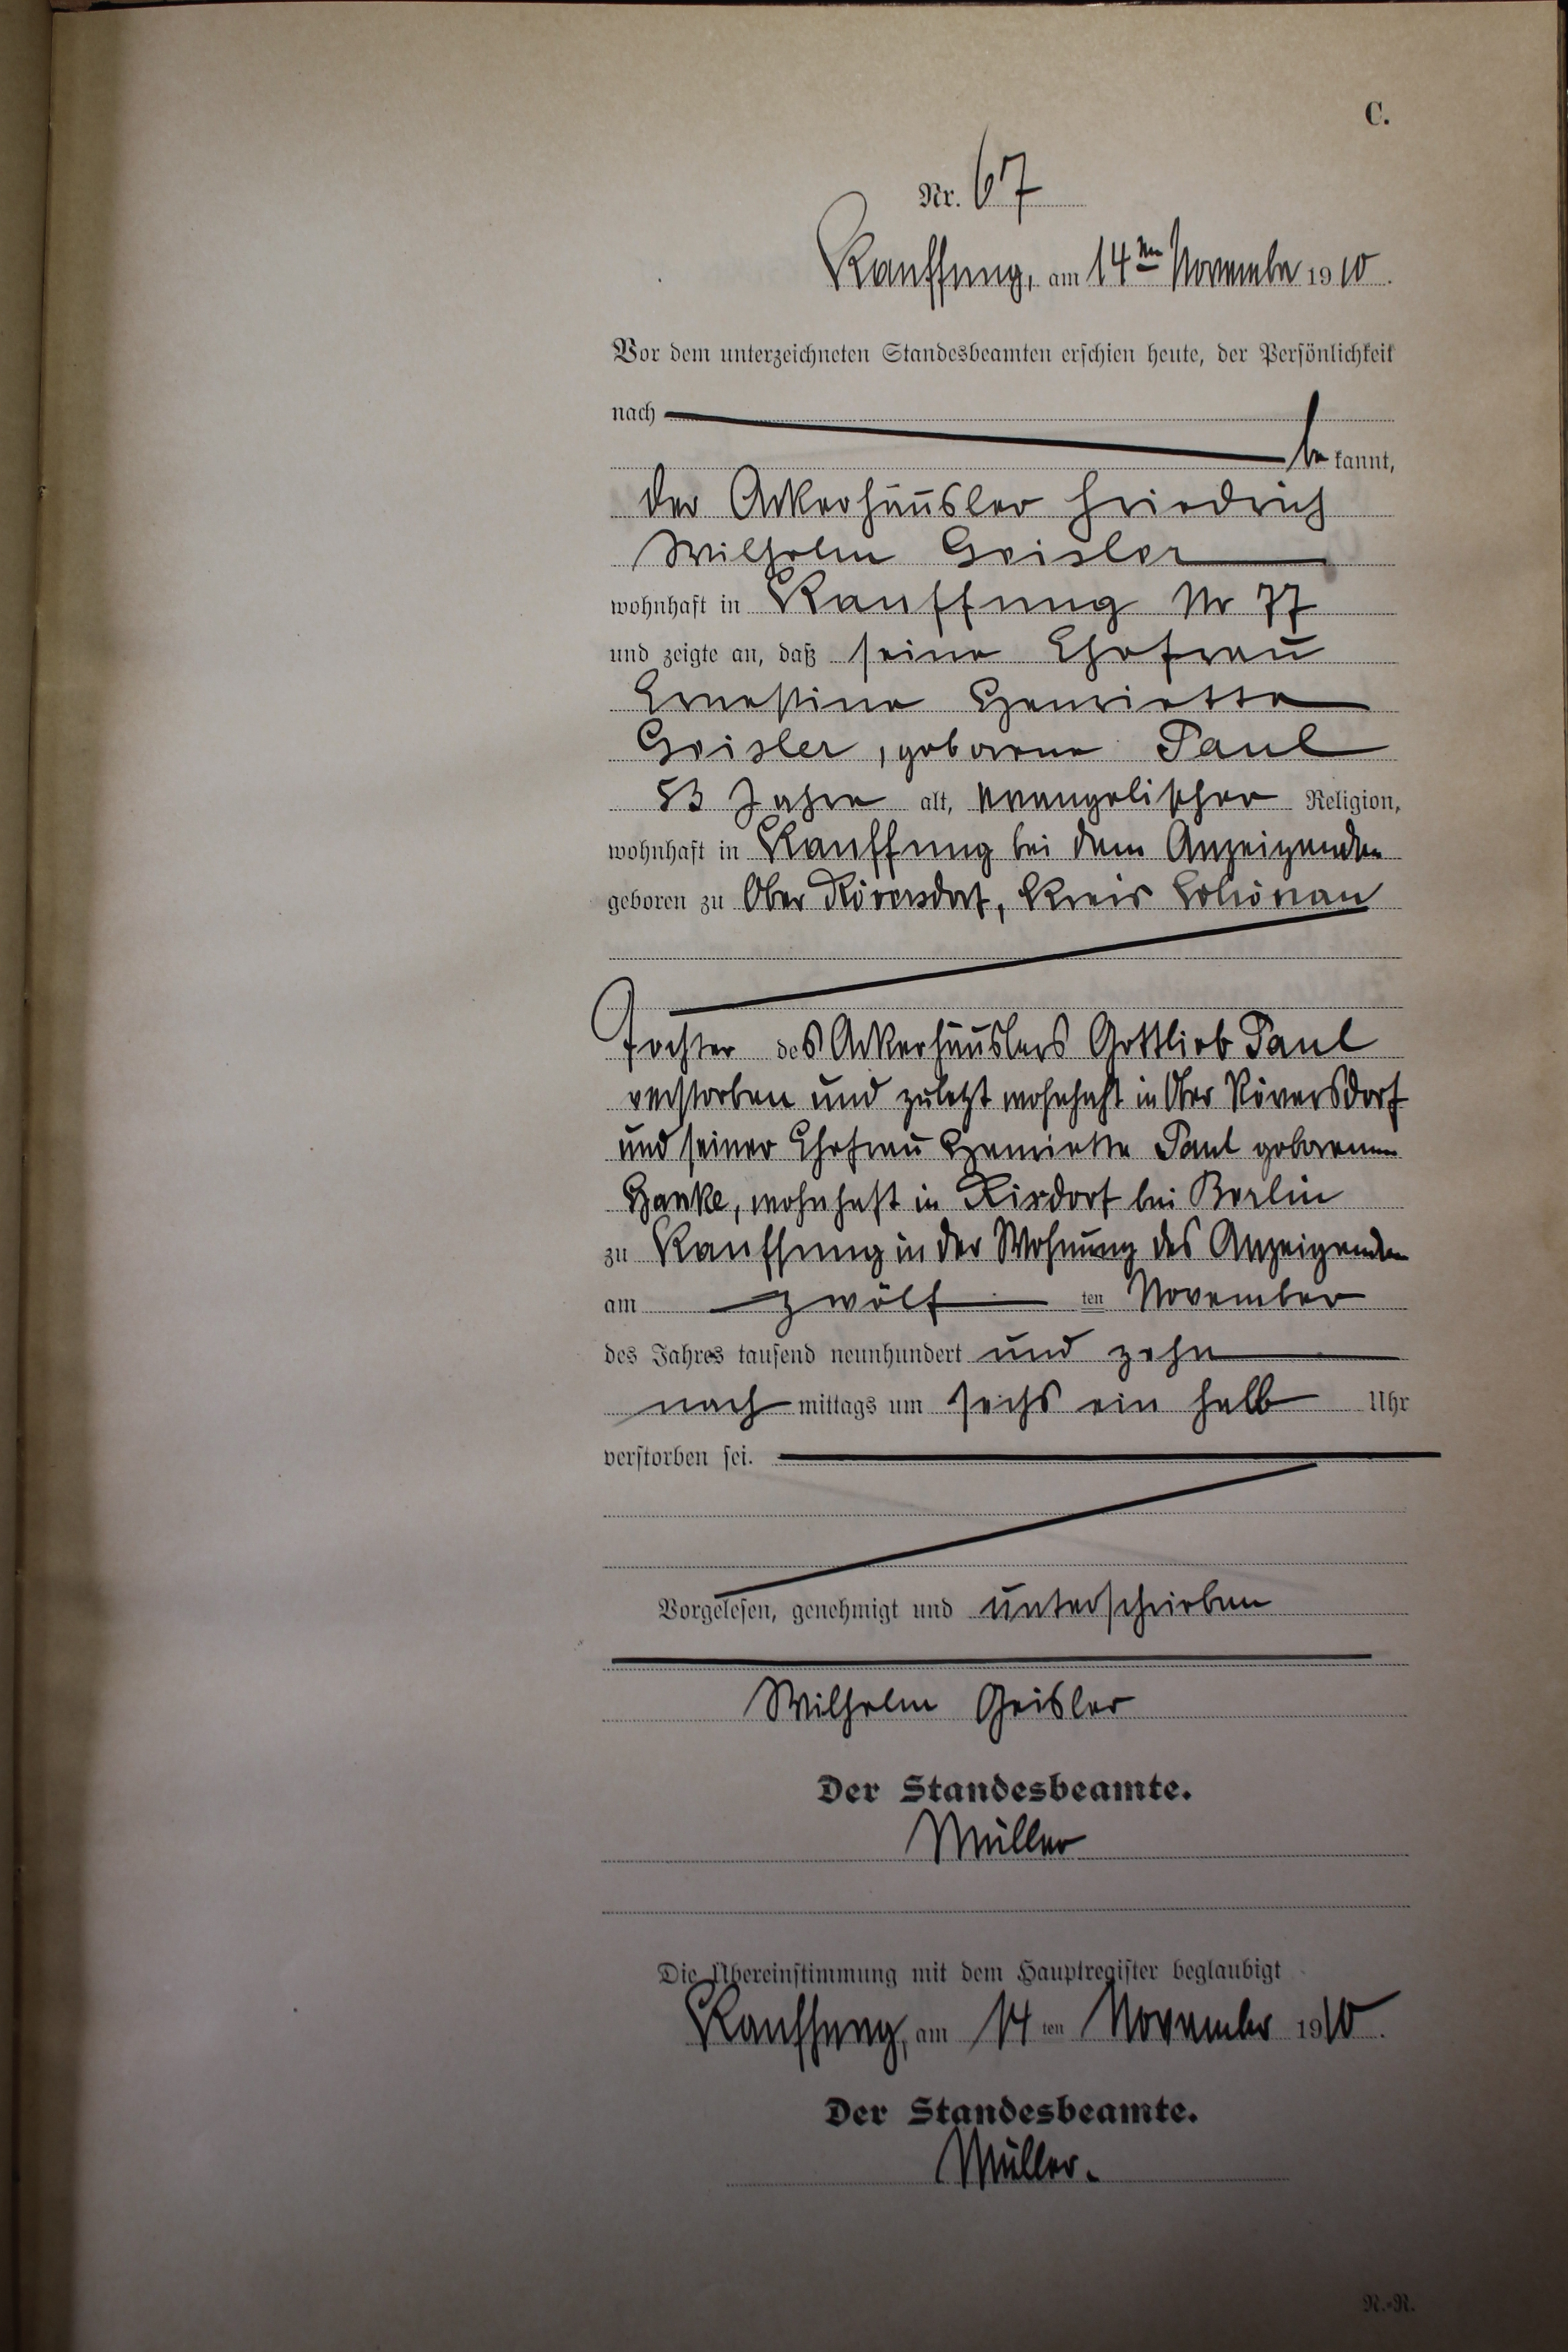 C.
Nr. 67
Kauffung, am 14ten November 1910.
Vor dem unterzeichneten Standesbeamten erschien heute, der Persönlichkeit
nach
be kannt,
der Ackerhäusler Friedrich
Wilhelm Geisler
wohnhaft in Kauffung Nr 77
und zeigte an, daß seine Ehefrau
Ernestine Henriette
Geisler, geborene Paul
53 Jahre alt, evangelischer Religion,
wohnhaft in Kauffung bei dem Anzeigenden
geboren zu Ober Röversdorf, Kreis Schönau
Tochter des Ackerhäuslers Gottlieb Paul
verstorben und zuletzt wohnhaft in Ober Röversdorf
und seiner Ehefrau Henriette Paul geborenen
Hanke, wohnhaft in Rixdorf bei Berlin
zu Kauffung in der Wohnung des Anzeigenden
am zwölf ten November
des Jahres tausend neunhundert und zehn
nach mittags um sechs ein halb Uhr
verstorben sei.
Vorgelesen, genehmigt und unterschrieben
Wilhelm Geisler
Der Standesbeamte.
Müller
Die Übereinstimmung mit dem Hauptregister beglaubigt
Kauffung, am 14 ten November 1910.
Der Standesbeamte.
Müller.
R.-R.